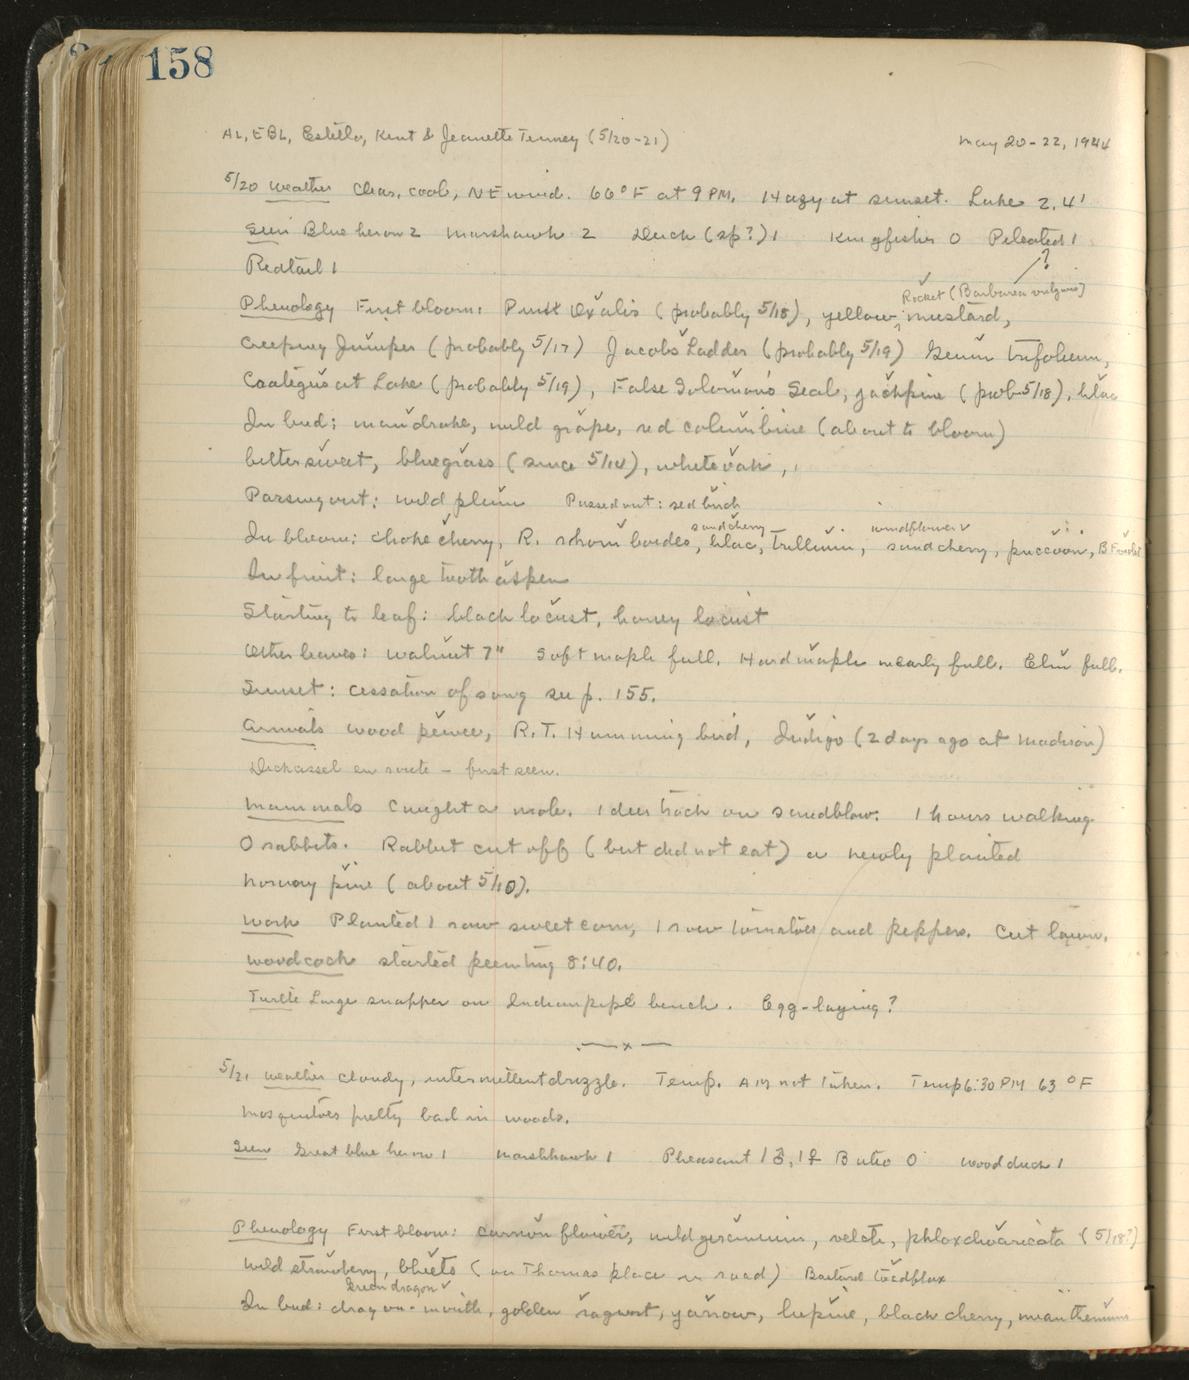 158
AL, EBL, Estella, Kent & Jeanette Tenney (5/20-21) May 20-22, 1944
5/20 Weather Clear, cool, NE wind. 66° F at 9 PM. Hazy at sunset. Lake 2.4'
Seen Blue heron 2 Marshawk 2 Duck (sp?) 1 Kingfisher 0 Pileated 1
?
Redtail 1
Rocket (Barbarea vulgaris)
Phenology First bloom: Oxalis (probably 5/18), yellow mustard,
Creeping Juniper (probably 5/17) Jacobs Ladder (probably 5/19) Geum trifolium,
at Lake (probably 5/19), False Solomons Seal, jackpine (prob 5/18), lilac
In bud: mandrake, wild grape, red columbine (about to bloom)
bittersweet, bluegrass (since 5/14), white oak,
Passing out: wild plum Passed out: red birch
sandcherry windflower
In bloom: choke cherry, R. thorn bordes, lilac, trillium, sandcherry, puccoon, B F violet
In fruit: large tooth aspen
Starting to leaf: black locust, honey locust
Other leaves: walnut 7" Soft maple full. Hard maple nearly full. Elm full.
Sunset: cessation of song see p. 155.
Arrivals wood pewee, R.T. Humming bird, Indigo (2 days ago at Madison)
Dickcissel en route - first seen.
Mammals Caught a mole. 1 deer track on sandblow. 1 hours walking
0 rabbits. Rabbit cut off (but did not eat) a newly planted
Norway pine (about 5/10).
Work Planted 1 row sweet corn, 1 row tomatoes and peppers. Cut lawn.
Woodcock started peenting 8:40.
Turtle Large snapper on Indianpipe bench. Egg-laying?
x
5/21 Weather cloudy, intermittent drizzle. Temp. AM not taken. Temp 6:30 PM 63 °F
Mosquitoes pretty bad in woods.
Seen Great blue heron 1 Marshhawk 1 Pheasant 1♂, 1♀ Buteo 0 Woodduck 1
Phenology First bloom: carrion flower, wild geranium, vetch, phlox divaricata (5/18?)
wild strawberry, bluets (on Thomas place in road) Bastard toadflax
Green dragon
In bud: dragon-mouth, golden ragwort, yarrow, lupine, black cherry, mianthemum